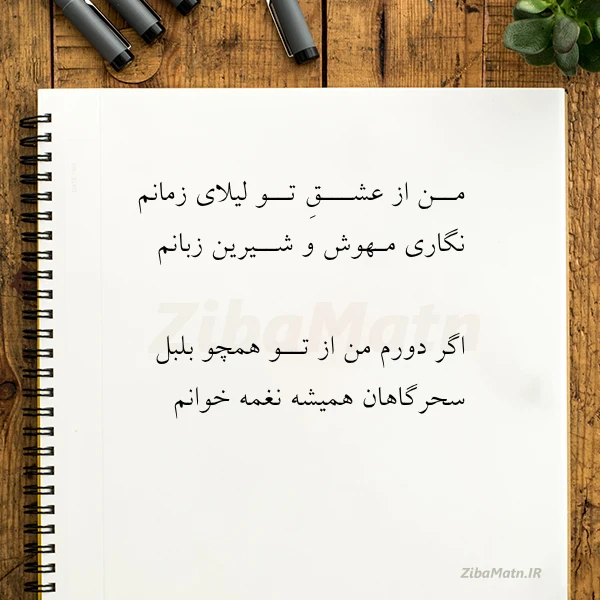 مـــن از عشـــــقِ تـــو لیلای زمانم
نگاری مـهوش و شـــیرین زبانم
اگر دورم من از تـــو همچو بلبل
سحرگاهان همیشه نغمه خوانم
ZibaMatn
ZibaMatn.IR